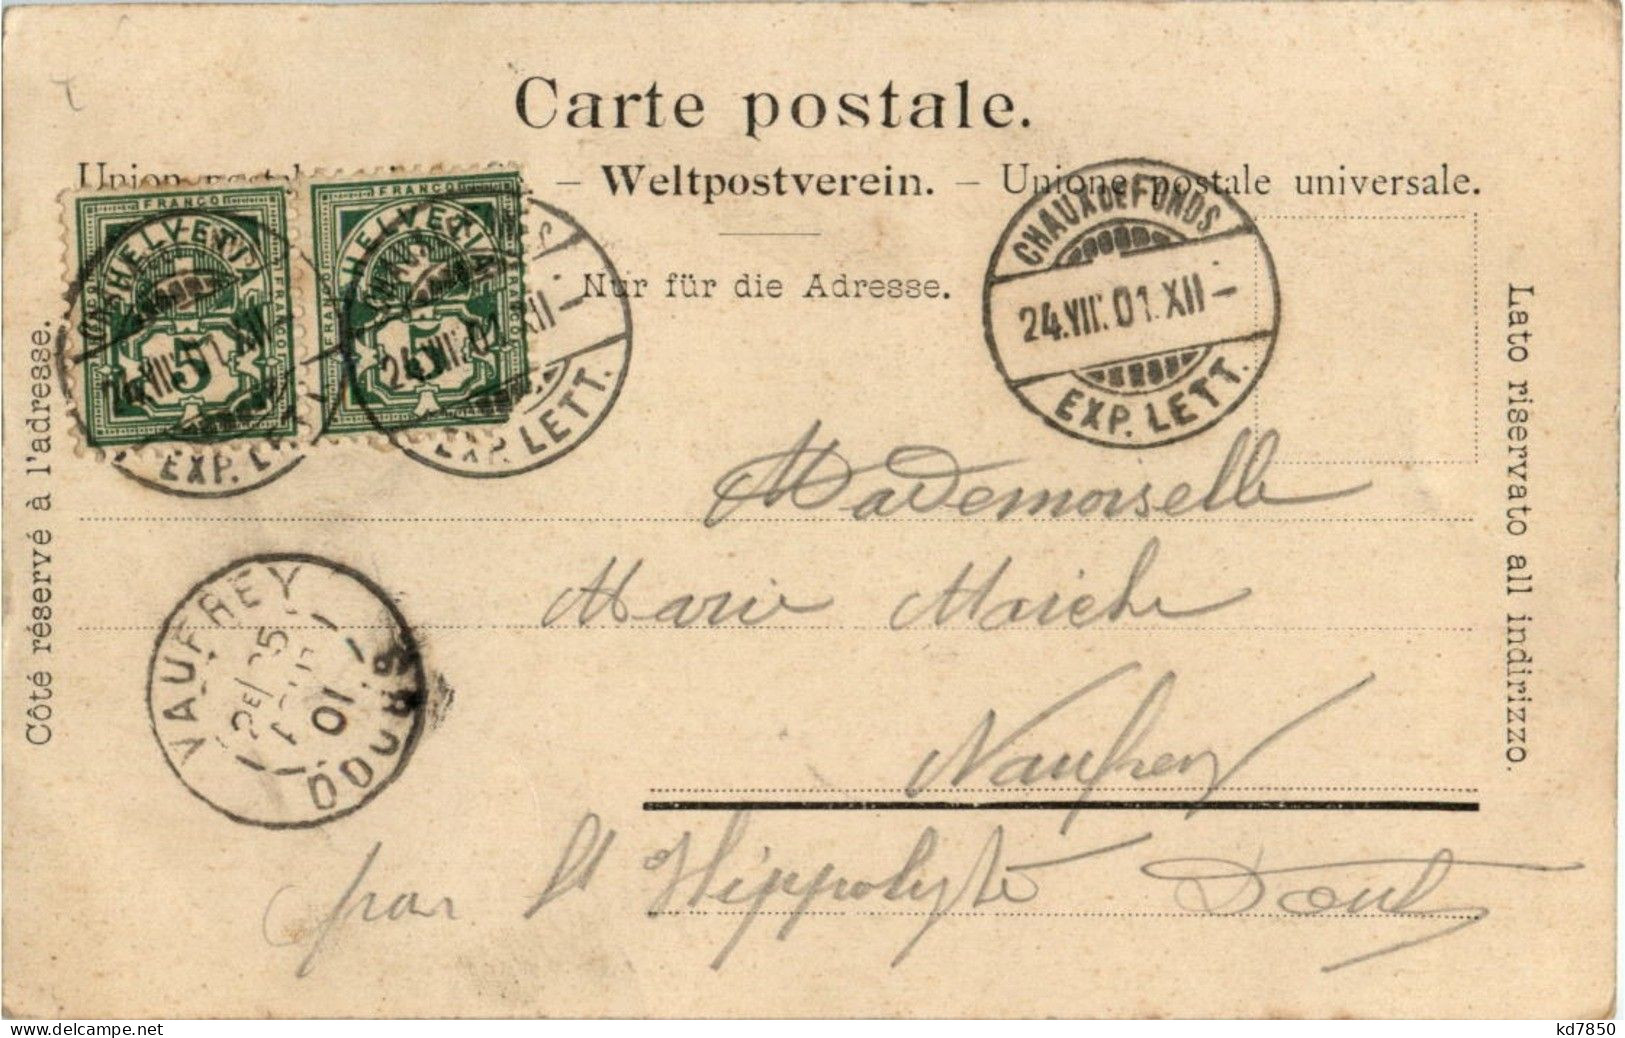 Carte postale.
Union postale – Weltpostverein. – Unione postale universale.
Nur für die Adresse.
Côté réservé à l'adresse.
Lato riservato all indirizzo.
FRANCO
HELVETIA
FRANCO
5
FRANCO
HELVETIA
FRANCO
5
EXP. LETT.
24.VII.01.XII–
EXP. LETT.
CHAUX DE FONDS
24.VII.01.XII–
EXP. LETT.
Mademoiselle
Marie Maiche
Vaufrey
par St Hippolyte Doubs
VAUFREY
25
01
DOUBS
kd7850